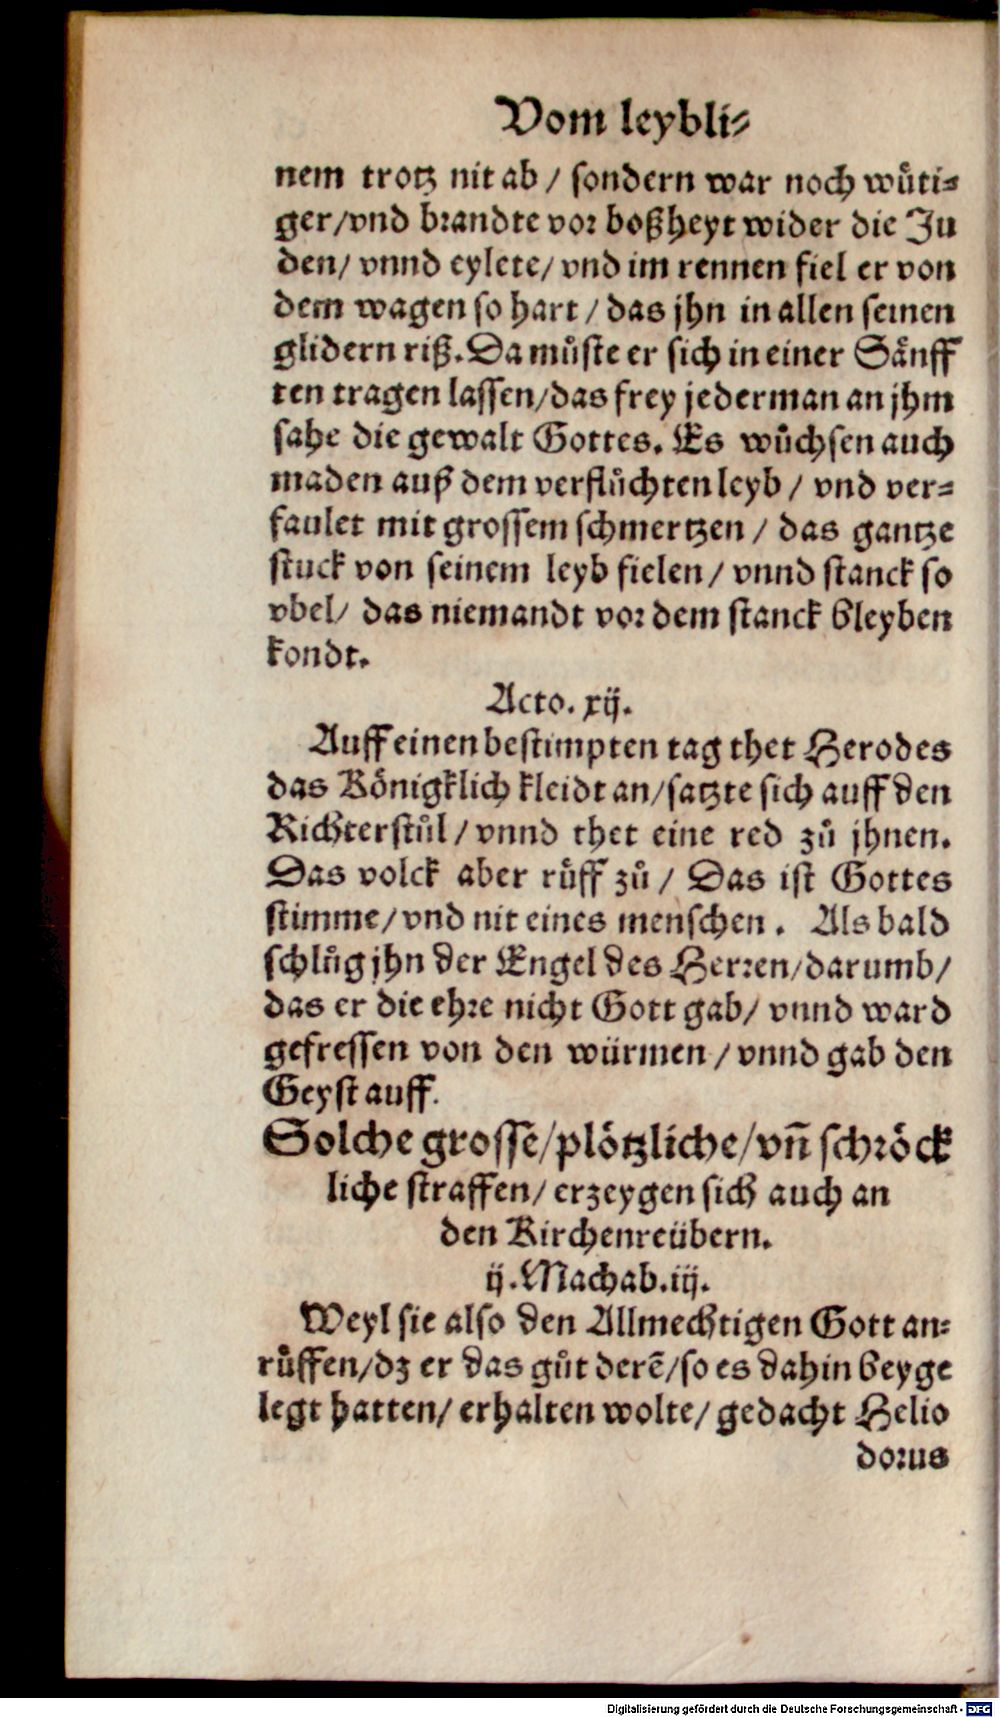 Vom leybli⸗
nem trotz nit ab / sondern war noch wuͤti⸗
ger/vnd brandte vor boßheyt wider die Ju
den/ vnnd eylete/ vnd im rennen fiel er von
dem wagen so hart / das jhn in allen seinen
glidern riß. Da muͦste er sich in einer Saͤnff
ten tragen lassen/das frey jederman an jhm
sahe die gewalt Gottes. Es wuͦchsen auch
maden auß dem verfluͦchten leyb / vnd ver⸗
faulet mit grossem schmertzen / das gantze
stuck von seinem leyb fielen / vnnd stanck so
vbel/ das niemandt vor dem stanck bleyben
kondt.
Acto. xij.
Auff einen bestimpten tag thet Herodes
das Koͤnigklich kleidt an/satzte sich auff den
Richterstuͦl / vnnd thet eine red zuͦ jhnen.
Das volck aber ruͦff zuͦ / Das ist Gottes
stimme/vnd nit eines menschen. Als bald
schluͦg jhn der Engel des Herren/darumb/
das er die ehre nicht Gott gab/ vnnd ward
gefressen von den würmen / vnnd gab den
Geyst auff.
Solche grosse/ploͤtzliche/vn̄ schroͤck
liche straffen/ erzeygen sich auch an
den Kirchenreübern.
ij. Machab. iij.
Weyl sie also den Allmechtigen Gott an⸗
ruͦffen/dz er das guͦt derē/so es dahin beyge
legt hatten/ erhalten wolte/ gedacht Helio
dorus
Digitalisierung gefördert durch die Deutsche Forschungsgemeinschaft - DFG